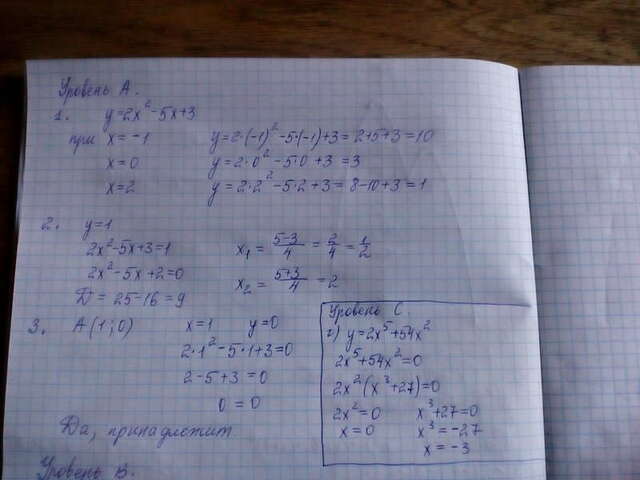 Уровень А.
1. y=2x²-5x+3
при x=-1 y=2·(-1)²-5·(-1)+3=2+5+3=10
x=0 y=2·0²-5·0+3=3
x=2 y=2·2²-5·2+3=8-10+3=1
2. y=1
2x²-5x+3=1 x₁ = (5-3)/4 = 2/4 = 1/2
2x²-5x+2=0
D=25-16=9 x₂ = (5+3)/4 = 2
3. A(1;0) x=1 y=0
2·1²-5·1+3=0
2-5+3=0
0=0
Да, принадлежит
Уровень С.
г) y=2x⁵+54x²
2x⁵+54x²=0
2x²(x³+27)=0
2x²=0 x³+27=0
x=0 x³=-27
x=-3
Уровень В.